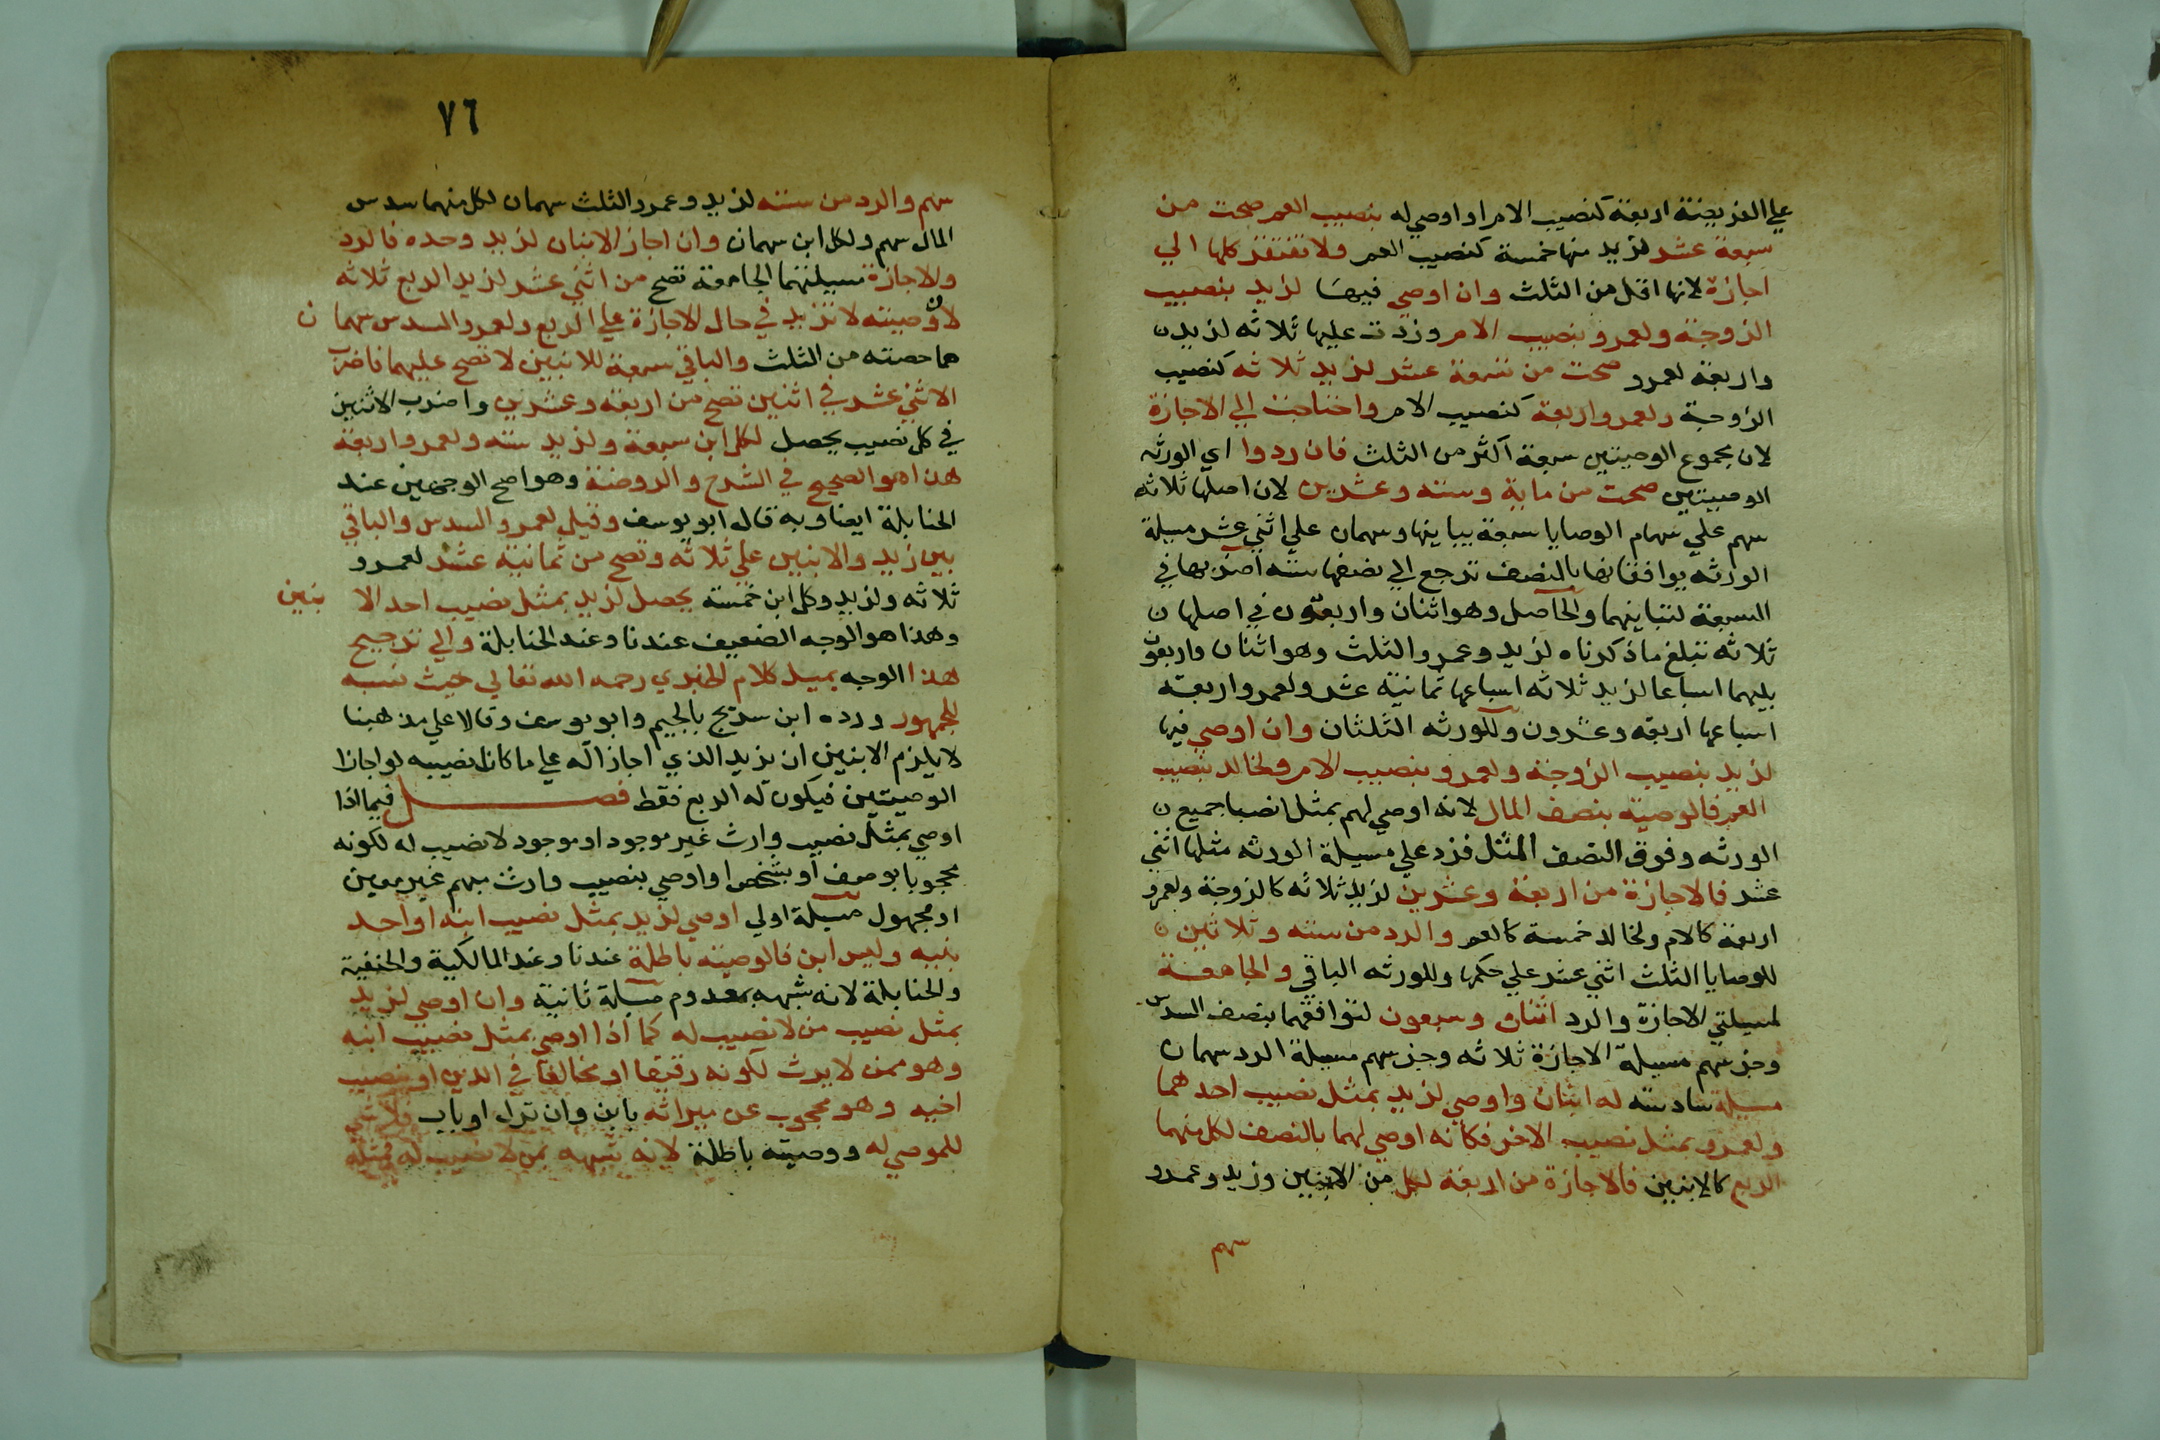 علي الفريضة اربعة كنصيب الام او اوصي له بنصيب العم صحت من
سبعة عشر لزيد منها خمسة كنصيب العم ولا تفتقر كلها الي
اجازة لانها اقل من الثلث وان اوصي فيها لزيد بنصيب
الزوجة ولعمرو بنصيب الام وزدت عليها ثلاثه لزيد
واربعة لعمرو صحت من تسعة عشر لزيد ثلاثه كنصيب
الزوجة ولعمرو اربعة كنصيب الام واحتاجت الي الاجازة
لان مجموع الوصيتين سبعة اكثر من الثلث فان ردوا اي الورثه
الوصيتين صحت من ماية وستة وعشرين لان اصلها ثلاثه
سهم علي سهام الوصايا سبعة يباينها وسهمان علي اثني عشر مسيلة
الورثه يوافقانها بالنصف ترجع الي نصفها سته اضربها في
السبعة لتباينهما والحاصل وهو اثنان واربعون في اصلها
ثلاثه تبلغ ما ذكرناه لزيد وعمرو الثلث وهو اثنان واربعون
بليهما اسباعا لزيد ثلاثه اسباعها ثمانية عشر ولعمرو اربعة
اسباعها اربعه وعشرون وللورثه الثلثان وان اوصي فيها
لزيد بنصيب الزوجة ولعمرو بنصيب الام ولخالد بنصيب
العم فالوصية بنصف المال لانه اوصي لهم بمثل انصبا جميع
الورثه وفوق النصف المثل فزد علي مسيلة الورثه مثلها اثني
عشر فالاجازة من اربعة وعشرين لزيد ثلاثه كالزوجة ولعمرو
اربعة كالام ولخالد خمسة كالعم والرد من سته وثلاثين
للوصايا الثلث اثني عشر علي حكمها وللورثه الباقي والجامعة
لمسيلتي الاجازة والرد اثنان وسبعون لتوافقهما بنصف السدس
وجز سهم مسيلة الاجازة ثلاثه وجز سهم مسيلة الرد سهمان
مسيلة سادسة له ابنان واوصي لزيد بمثل نصيب احدهما
ولعمرو بمثل نصيب الاخر فكانه اوصي لهما بالنصف لكل منهما
الربع كالابنين فالاجازة من اربعة لكل من الابنين وزيد وعمرو
سهم
٧٦
سهم والرد من سته لزيد وعمرو الثلث سهمان لكل منهما سدس
المال سهم ولكل ابن سهمان وان اجاز الابنان لزيد وحده فالرد
والاجازة مسيلتهما الجامعة تصح من اثني عشر لزيد الربع ثلاثه
لان وصيته لا تزيد في حال الاجازة علي الربع ولعمرو السدس سهمان
هما حصته من الثلث والباقي سبعة للابنين لا تصح عليهما فاضرب
الاثني عشر في اثنين تصح من اربعة وعشرين واضرب الاثنين
في كل نصيب يحصل لكل ابن سبعة ولزيد سته ولعمرو اربعة
هذا هو الصحيح في الشرح والروضة وهو اصح الوجهين عند
الحنابلة ايضا وبه قال ابو يوسف وقيل لعمرو السدس والباقي
بين زيد والابنين علي ثلاثه وتصح من ثمانية عشر لعمرو
ثلاثه ولزيد وكل ابن خمسة يحصل لزيد بمثل نصيب احد الابنين
وهذا هو الوجه الضعيف عندنا وعند الحنابلة والي ترجيح
هذا الوجه يميل كلام الخبري رحمه الله تعالي حيث نسبه
للجمهور ورده ابن سريج بالجيم وابو يوسف وقالا علي مذهبنا
لا يلزم الابنين ان يزيد الذي اجازا له علي ما كان نصيبه لو اجازا
الوصيتين فيكون له الربع فقط فصل فيما اذا
اوصي بمثل نصيب وارث غير موجود او موجود لا نصيب له لكونه
محجوبا بوصف او بشخص او اوصي بنصيب وارث مبهم غير معين
او مجهول مسيلة اولي اوصي لزيد بمثل نصيب ابنه او احد
بنيه وليس ابن فالوصية باطلة عندنا وعند المالكية والحنفية
والحنابلة لانه شبهه بمعدوم مسيلة ثانية وان اوصي لزيد
بمثل نصيب من لا نصيب له كما اذا اوصي بمثل نصيب ابنه
وهو ممن لا يرث لكونه رقيقا او مخالفا في الدين او بنصيب
اخيه وهو محجوب عن ميراثه بابن وان نزل او باب فلا شي
للموصي له ووصيته باطلة لانه شبهه بمن لا نصيب له فمثله